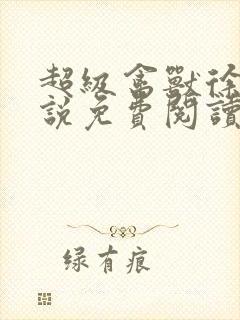 超級禽獸徐
說免費閱讀
绿有痕